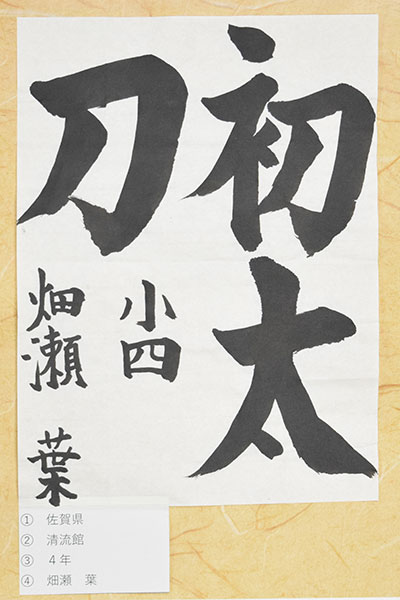 初太
刀
小四
畑瀬 葉
① 佐賀県
② 清流館
③ 4年
④ 畑瀬 葉